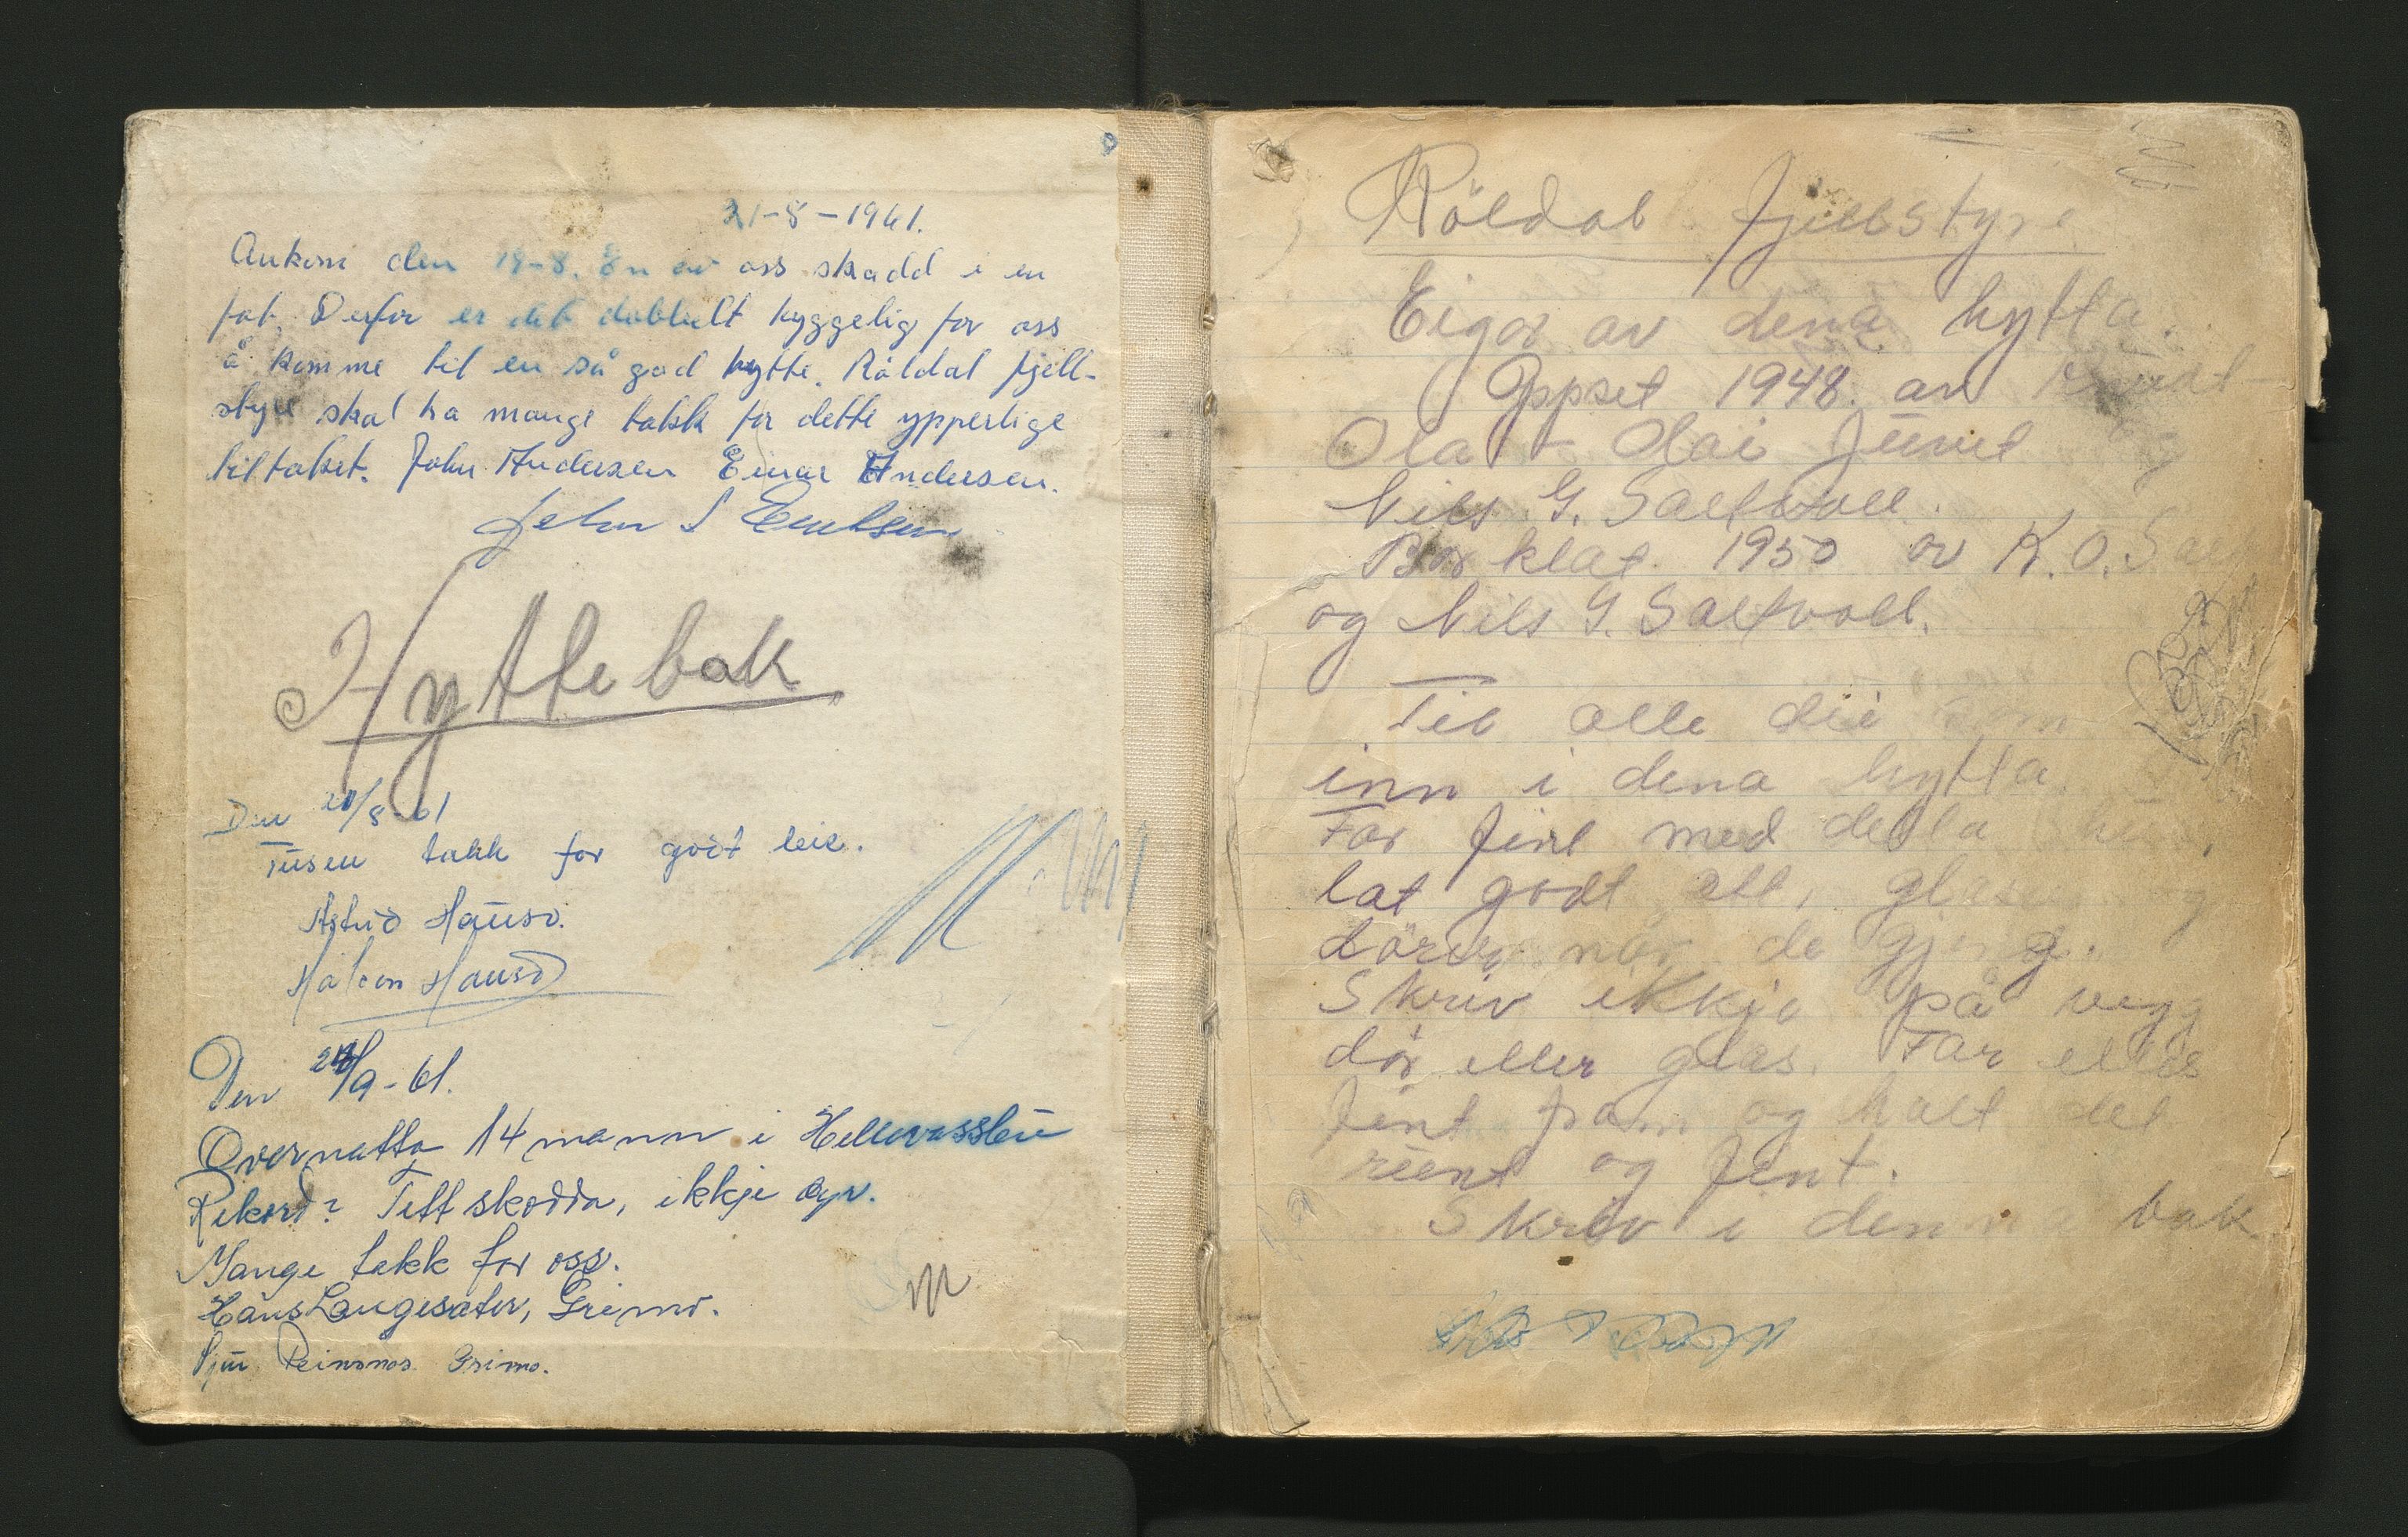 21-8-1961.
Ankom den 19-8. En av oss skadd i en
fot. Derfor er det dobbelt hyggelig for oss
å komme til en så god hytte. Röldal fjell-
styre skal ha mange takk for dette ypperlige
tiltaket. John Andersen Einar Andersen.
John S
Hyttebok
Den 20/8-61
Tusen takk for godt leie.
Astrid Hauso.
Håkon Hauso
Den /9-61.
Overnatta 14 mann i Hellevassbu
Rekord? Tett skodda, ikkje dyr.
Mange takk for oss.
Hans Langesæter, Grimo.
Reinsnos Grimo.
Röldal fjellstyre
Eigar av dena hytta.
Oppset 1948. av Knut
Ola Olai Juvet og
Nils G. Saltvoll.
Bor klat 1950 av K. O.
og Nils G. Saltvoll.
Til alle dei som
inn i dena hytta.
Far fint med detta
lat godt att, glas og
dörer når de gjeng.
Skriv ikkje på vegg
dör eller glas. Far elles
fint fram og halt det
reent og fint.
Skriv i denna bok